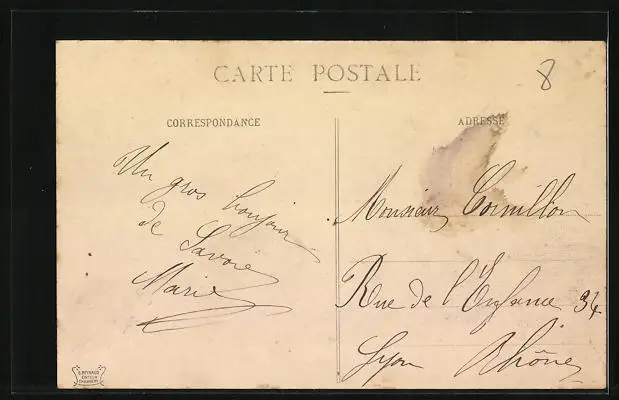 CARTE POSTALE
8
CORRESPONDANCE
ADRESSE
Un gros bonjour
de Savoie
Marie
Monsieur Cornillon
Rue de l'Enfance 34
Lyon Rhône
G. REYNAUD
EDITEUR
CHAMBERY